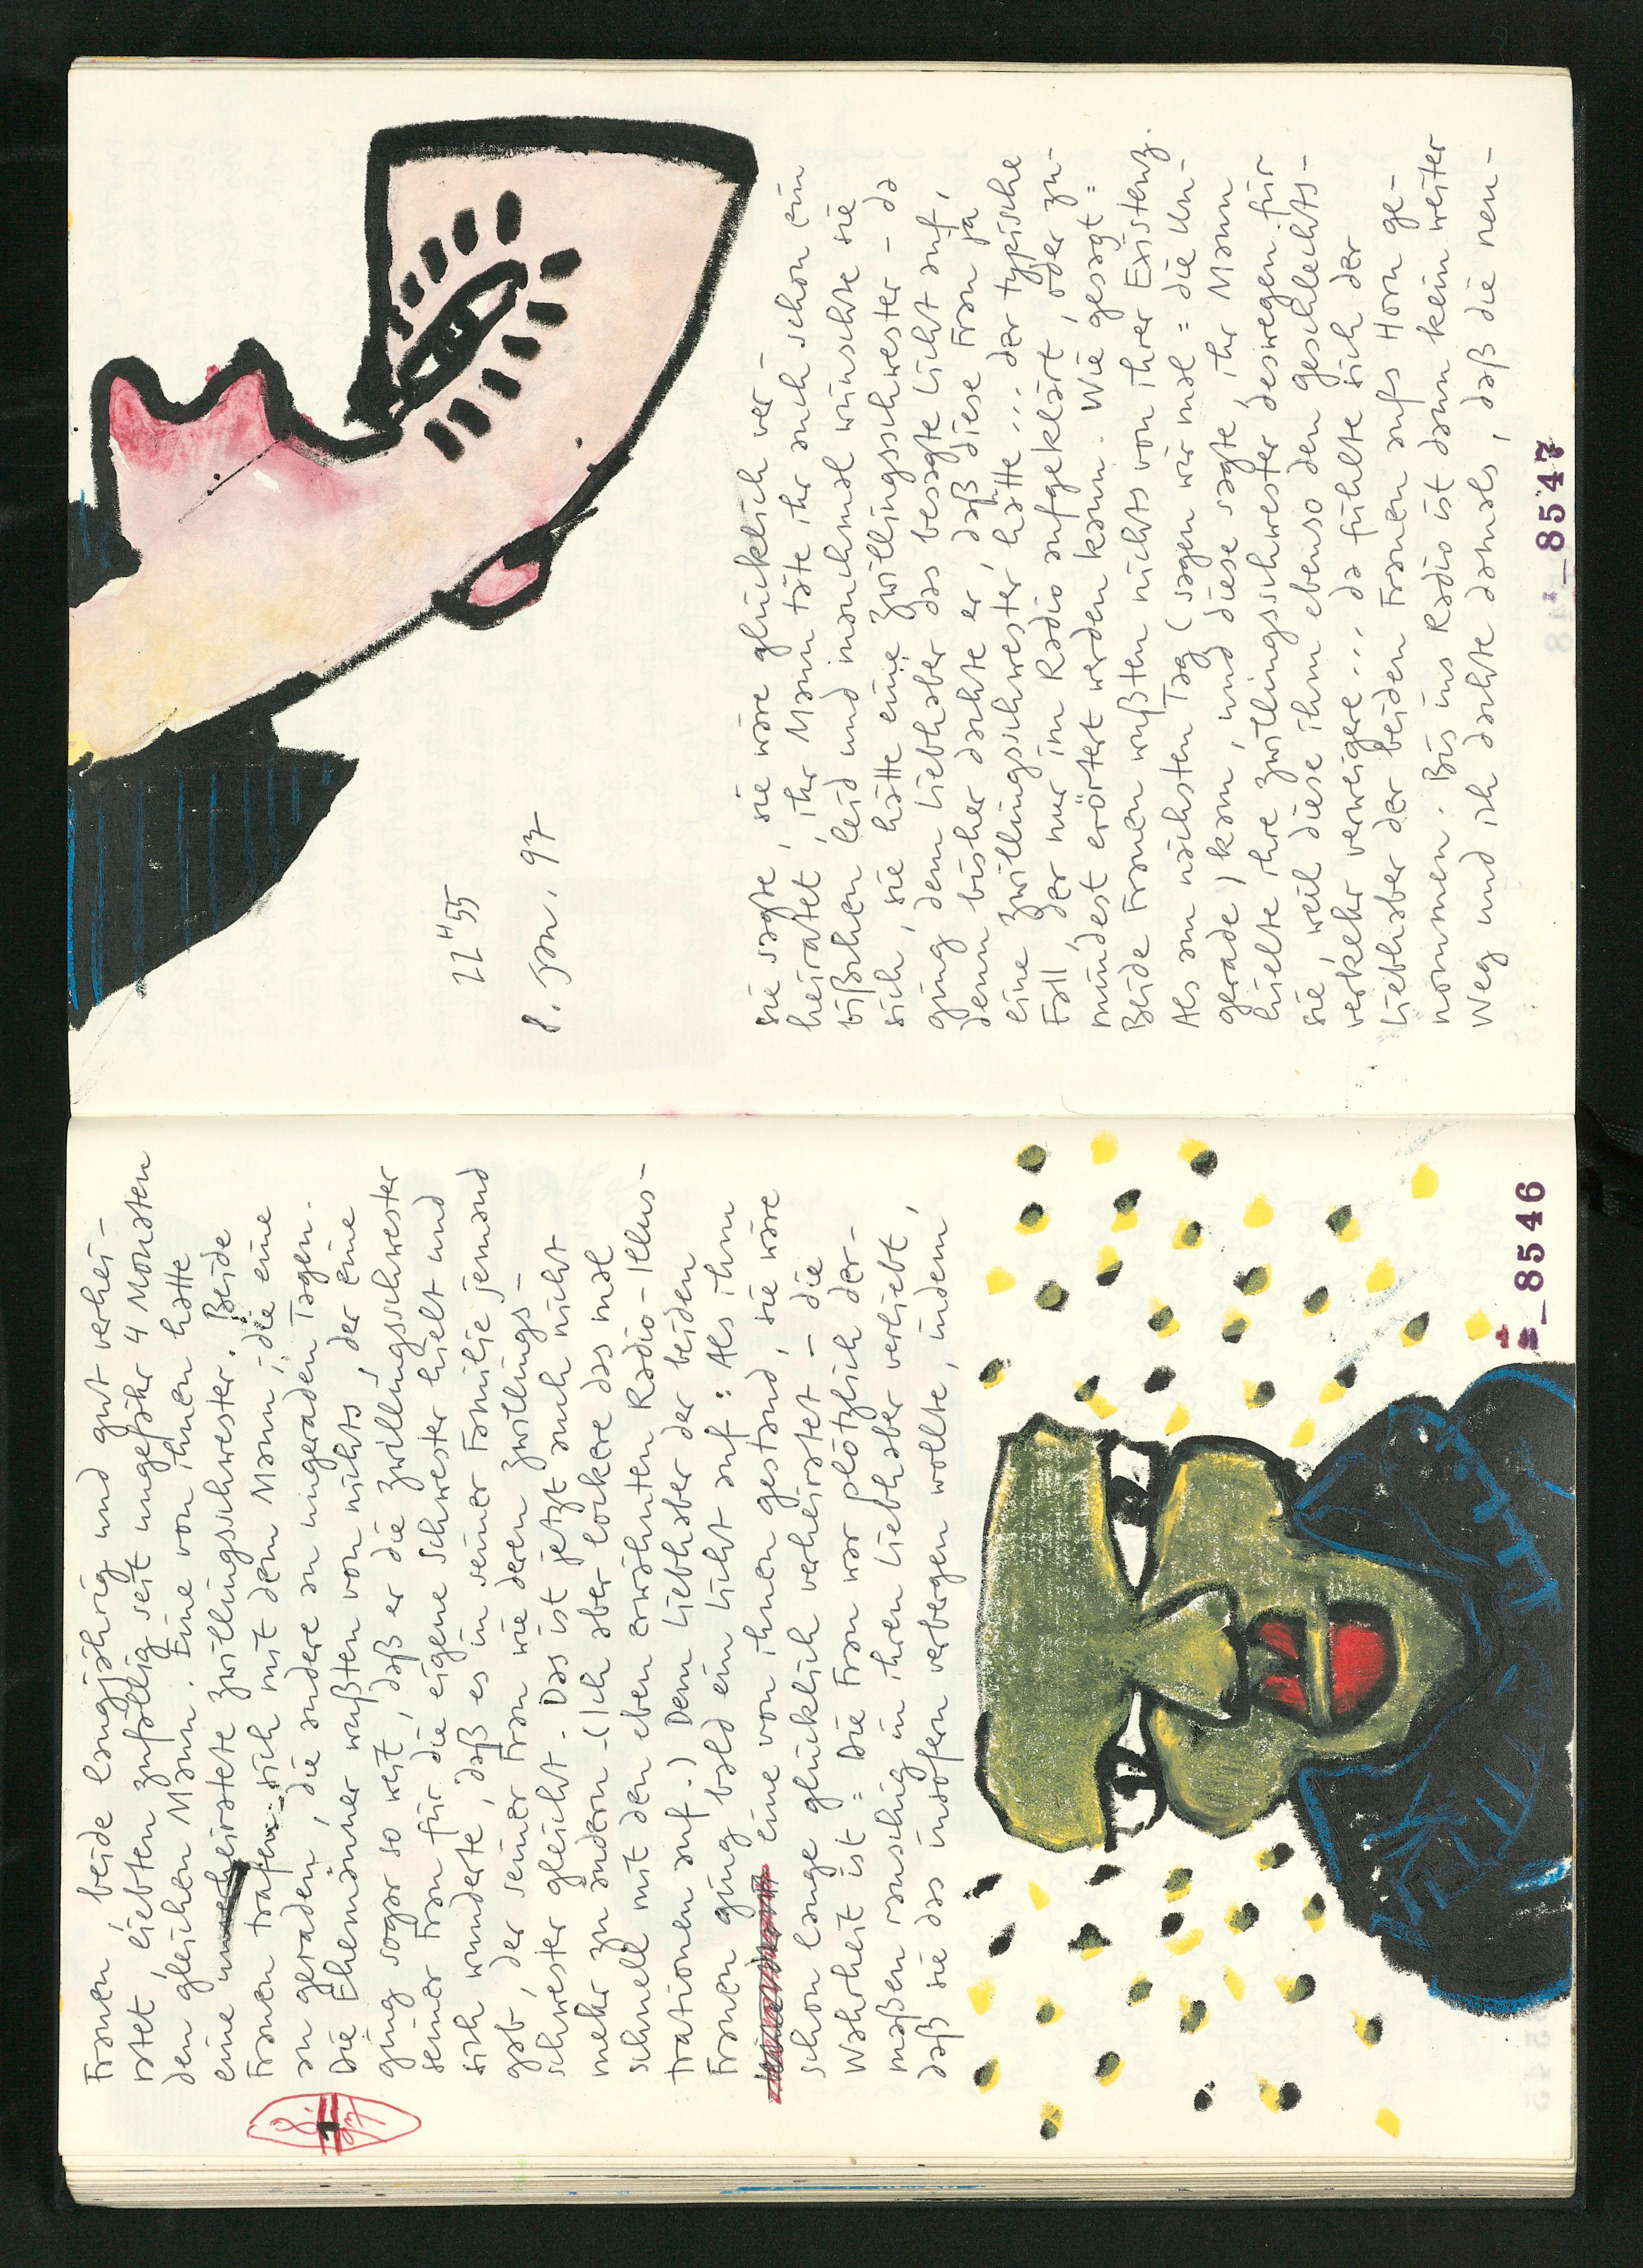 Frauen, beide langjährig und gut verhei-
ratet, liebten zufällig seit ungefähr 4 Monaten
den gleichen Mann. Eine von ihnen hatte
eine verheiratete Zwillingsschwester. Beide
Frauen trafen sich mit dem Mann; die eine
an geraden, die andere an ungeraden Tagen.
Die Ehemänner wußten von nichts, der eine
ging sogar so weit, daß er die Zwillingsschwester
seiner Frau für die eigene Schwester hielt und
sich wunderte, daß es in seiner Familie jemand
gab, der seiner Frau wie deren Zwillings-
schwester gleicht. Das ist jetzt auch nicht
mehr zu ändern. (Ich aber lockere das mal
schnell mit den eben erwähnten Radio-Illus-
trationen auf.) Dem Liebhaber der beiden
Frauen ging bald ein Licht auf: Als ihm
eine von ihnen gestand, sie wäre
schon lange glücklich verheiratet – die
Wahrheit ist: Die Frau war plötzlich der-
maßen rauschig in ihren Liebhaber verliebt,
daß sie das insofern verbergen wollte, indem
8546
8.
1
97
22 H 55
8. Jan. 97
sie sagte, sie wäre glücklich ver-
heiratet, ihr Mann täte ihr auch schon ein
bißchen leid und manchmal wünschte sie
sich, sie hätte eine Zwillingsschwester – da
ging dem Liebhaber das besagte Licht auf,
denn bisher dachte er, daß diese Frau ja
eine Zwillingsschwester hätte ... der typische
Fall, der nur im Radio aufgeklärt, oder zu-
mindest erörtert werden kann. Wie gesagt:
Beide Frauen wußten nichts von ihrer Existenz.
Als am nächsten Tag (sagen wir mal: die Un-
gerade) kam, und diese sagte, ihr Mann
hielte ihre Zwillingsschwester deswegen für
sie, weil diese ihm ebenso den geschlechts-
verkehr verweigere ... da fühlte sich der
Liebhaber der beiden Frauen aufs Horn ge-
nommen. Bis ins Radio ist dann kein weiter
Weg und ich dachte damals, daß die neu-
8547